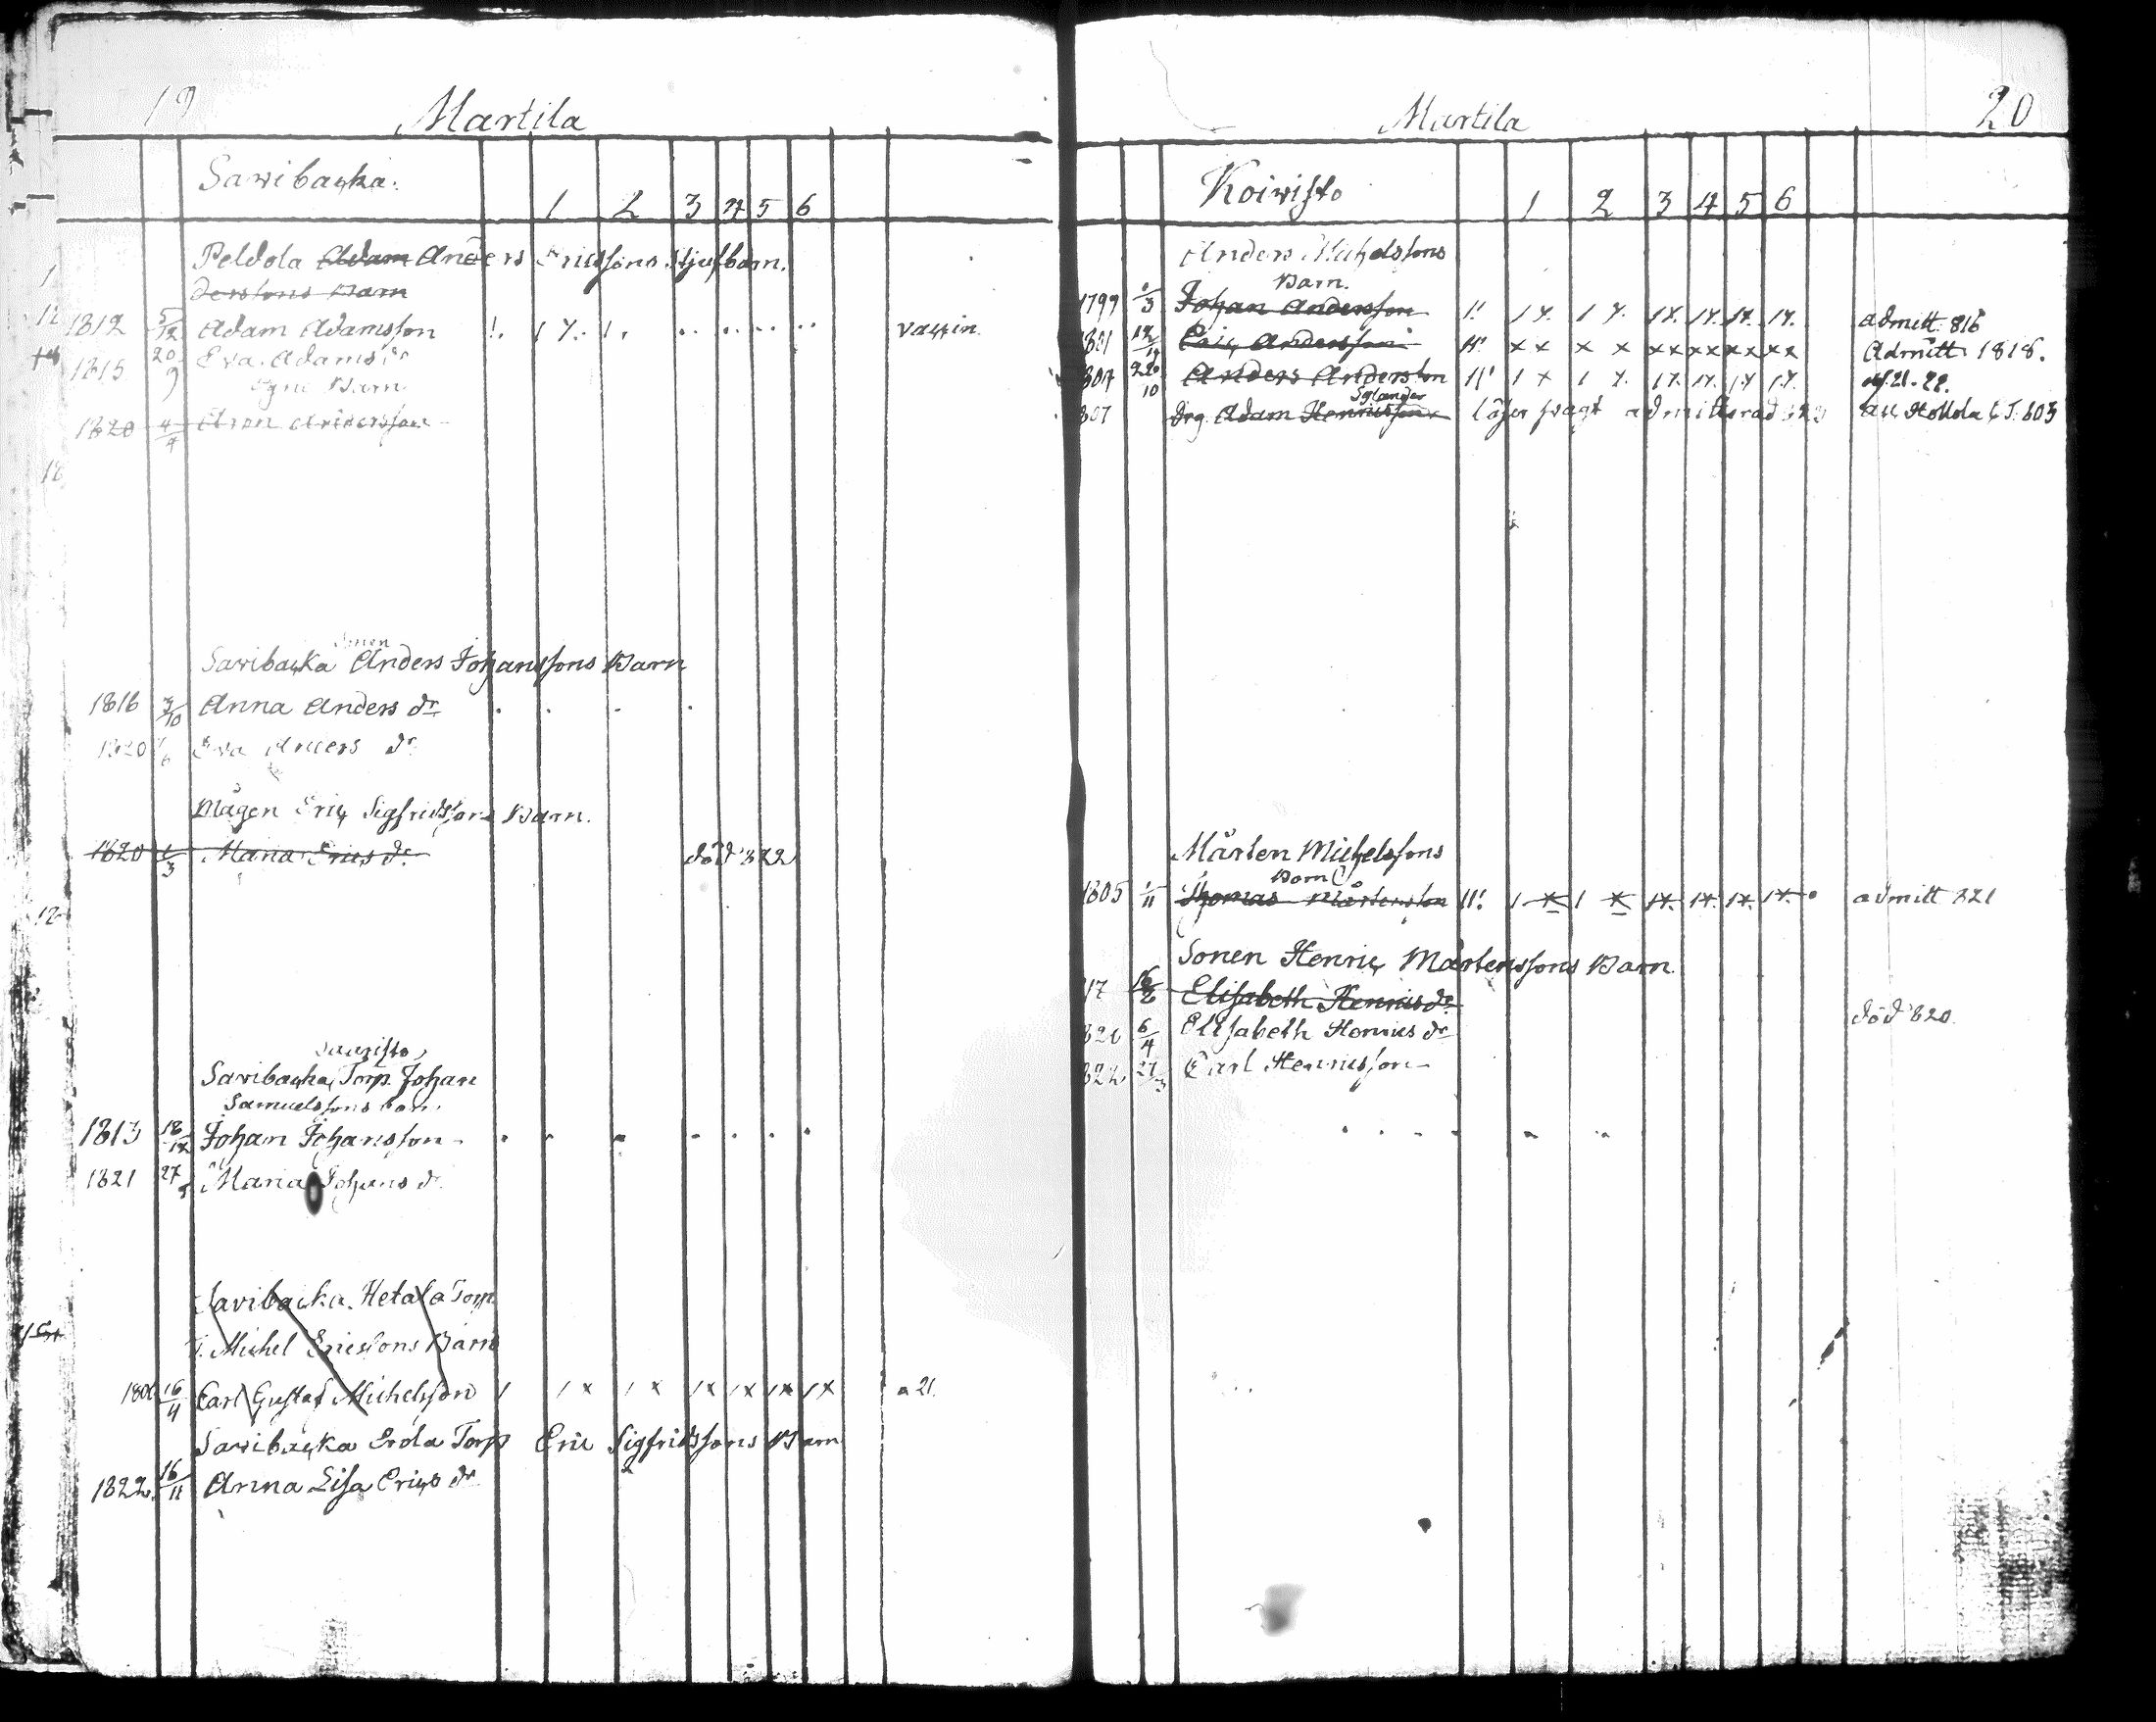 19 Martila
Savibacka.
1 2 3 4 5 6
Peldola Adam Anders Ericssons Stjufbarn.
derssons Barn
1812 5/12 Adam Adamsson vaccin.
1815 20/9 Eva Adams dr
Egne Barn
1820 4/4 Aron Andersson
Sonen
Savibacka Anders Johanssons Barn
1816 3/10 Anna Anders dr
1820 Eva Anders dr
Mågen Eric Sigfridssons Barn.
1820 1/3 Maria Erics dr död 822
Sauristo
Savibacka Torp. Johan
Samuelssons barn.
1813 18/12 Johan Johansson
1821 27 Maria Johans dr
Savibacka Hetala Torp
T. Michel Ericssons Barn
180 16/4 Carl Gustaf Michelsson 1 1 x 1 x 1x 1x 1x 1x a 21.
Savibacka Erola Torp Eric Sigfridssons Barn
1822 16/11 Anna Lisa Erics dr
Martila 20
Koivisto
1 2 3 4 5 6
Anders Michelssons
Barn.
1799 /3 Johan Andersson admitt 816
801 12/12 Eric Andersson x x x x xx xx xx xx Admitt 1818.
807 22/10 Anders Andersson 21. 22.
Sglander
807 Drg Adam Henricsson läser svagt admitterad 823 Hollola 603
Mårten Michelssons
Barn
1805 1/11 Thomas Mårtensson admitt 821
Sonen Henric Mårtenssons Barn
17 16/2 Elisabeth Henrics dr död 820.
820 6/4 Elisabeth Henrics dr
822 21/3 Carl Henricsson